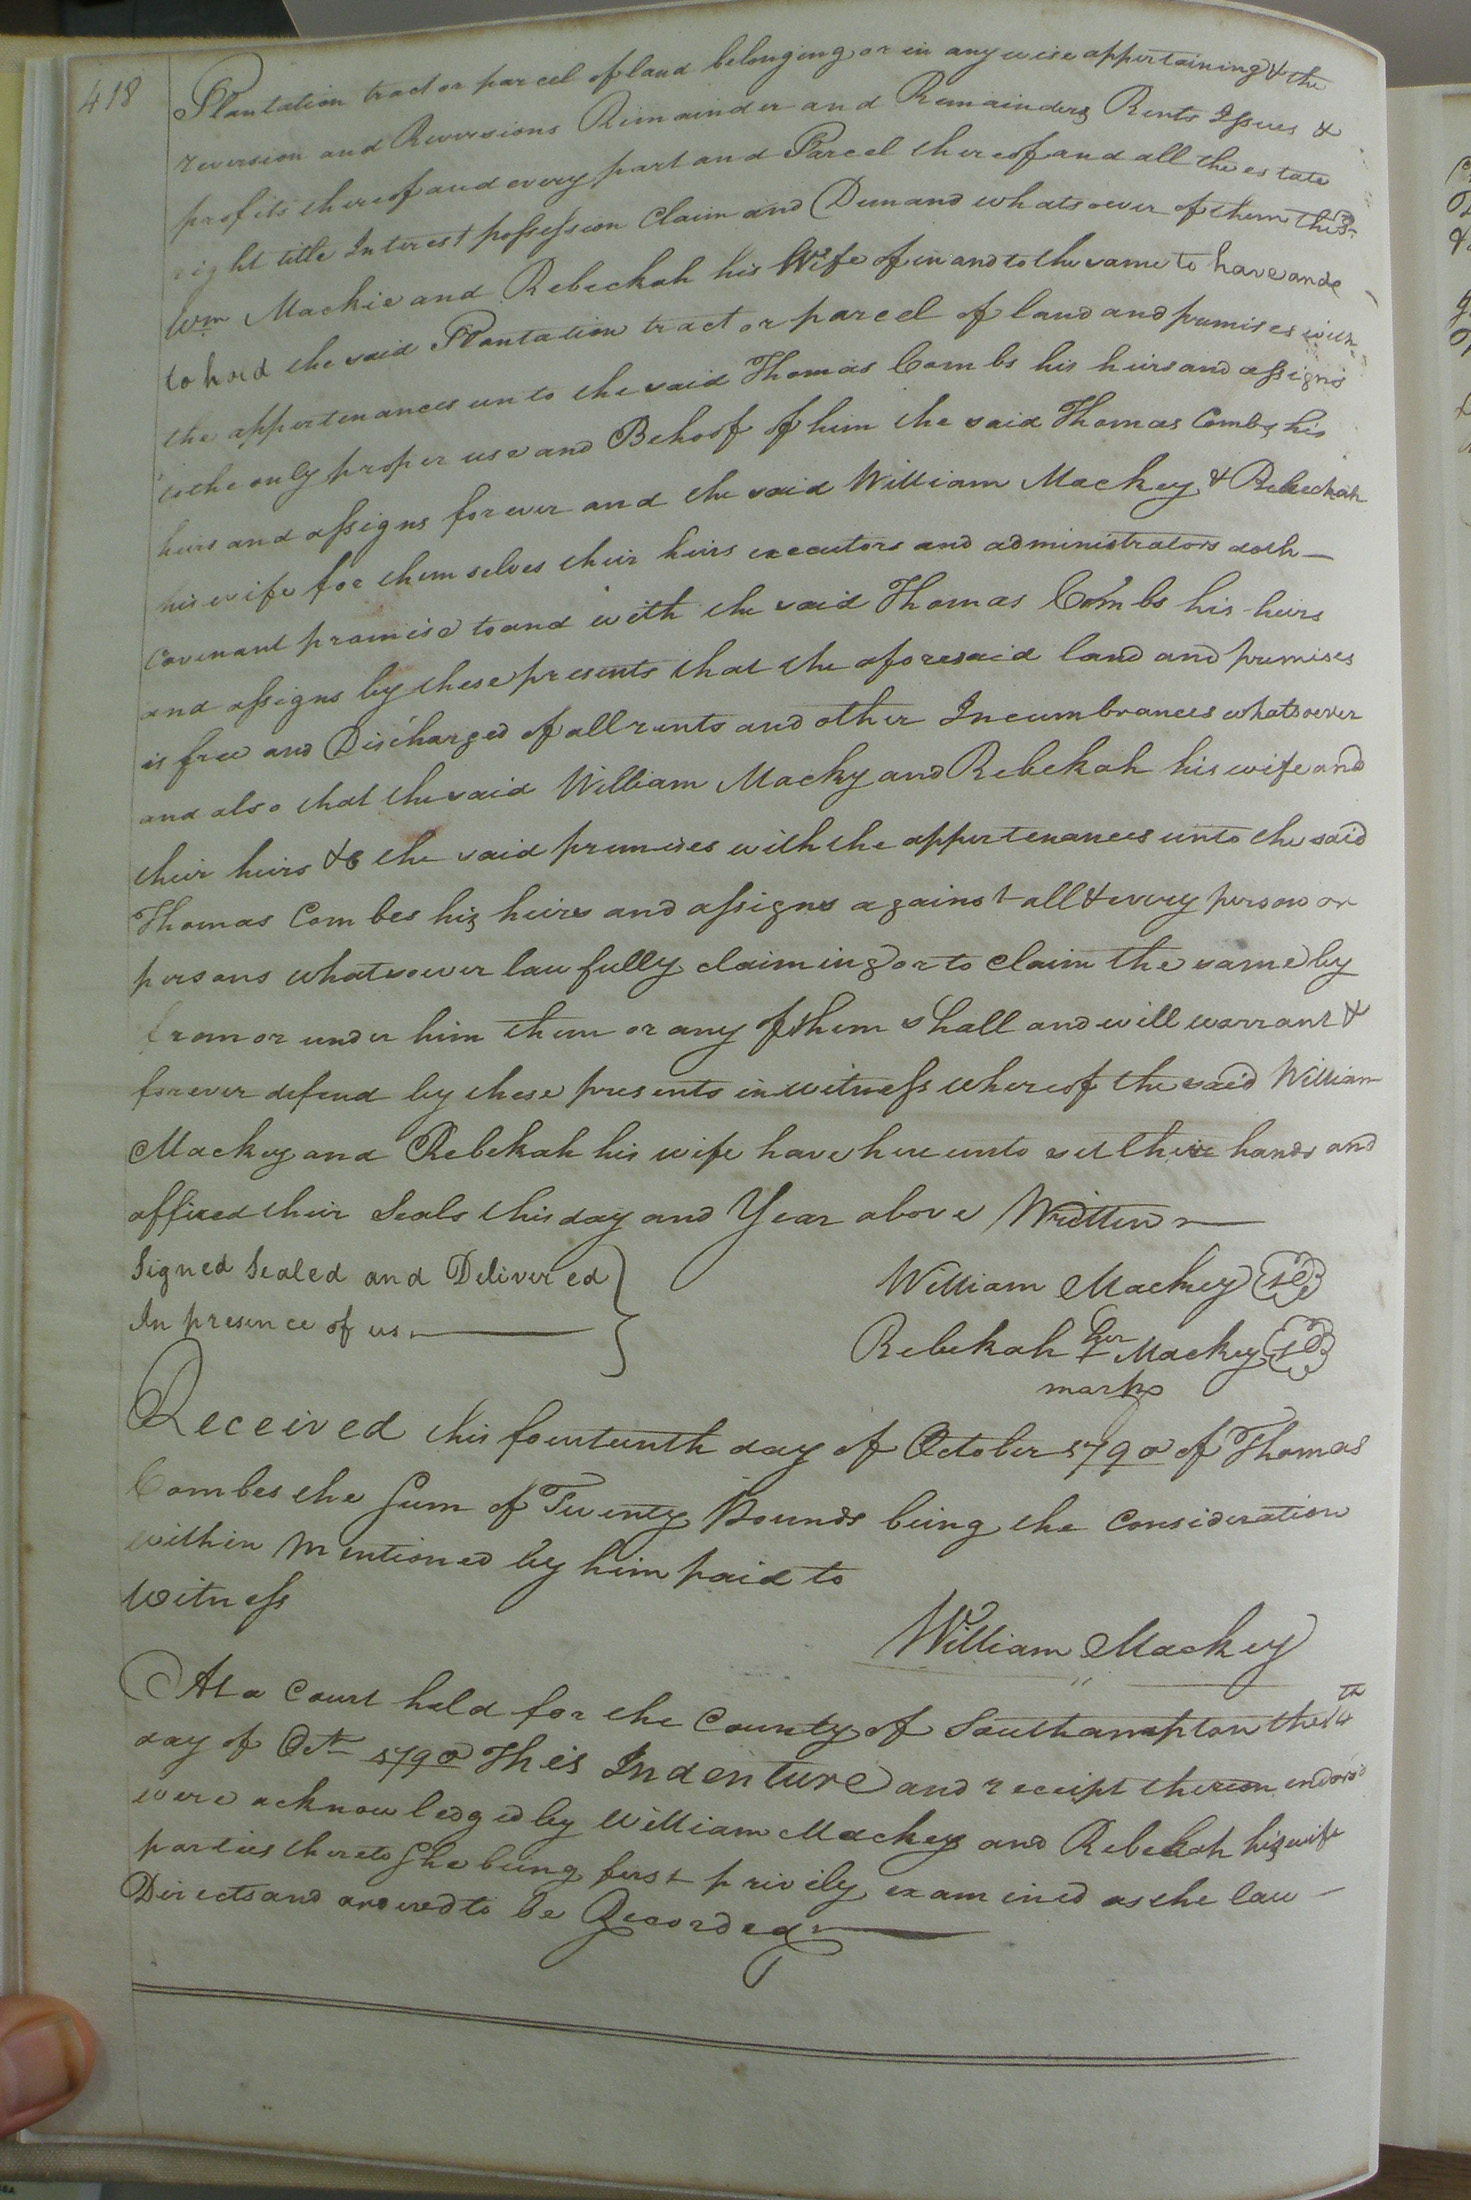 418
Plantation tract or parcel of land belonging or in any wise appertaining & the
reversion and Reversions Remainder and Remainders Rents Issues &
profits thereof and every part and Parcel thereof and all the estate
right title Interest possession Claim and Demand whatsoever of them the sd
Wm Mackie and Rebeckah his Wife of in and to the same to have and
to hold the said Plantation tract or parcel of land and premises with
the appertenances unto the said Thomas Combs his heirs and assigns
to the only proper use and Behoof of him the said Thomas Combs his
heirs and assigns forever and the said William Mackey & Rebeckah
his wife for themselves their heirs executors and administrators doth
Covenant promise to and with the said Thomas Combs his heirs
and assigns by these presents that the aforesaid land and premises
is free and Discharged of all rents and other Incumbrances whatsoever
and also that the said William Macky and Rebekah his wife and
their heirs &c the said premises with the appertenances unto the said
Thomas Combes his heirs and assigns against all & every person or
persons whatsoever lawfully claiming or to claim the same by
from or under him them or any of them shall and will warrant &
forever defend by these presents in witness whereof the said William
Mackey and Rebekah his wife have hereunto set their hands and
affixed their Seals this day and Year above Written
Signed Sealed and Delivered
In presence of us
William Mackey
Rebekah her + Mackey
mark
Received this fourteenth day of October 1790 of Thomas
Combes the Sum of Twenty Pounds being the Consideration
within Mentioned by him paid to
Witness
William Mackey
At a Court held for the County of Southampton the 14th
day of Octr 1790 This Indenture and receipt thereon endors'd
were acknowledged by William Mackey and Rebekah his wife
parties thereto She being first privily examined as the law
Directs and ordered to be Recorded